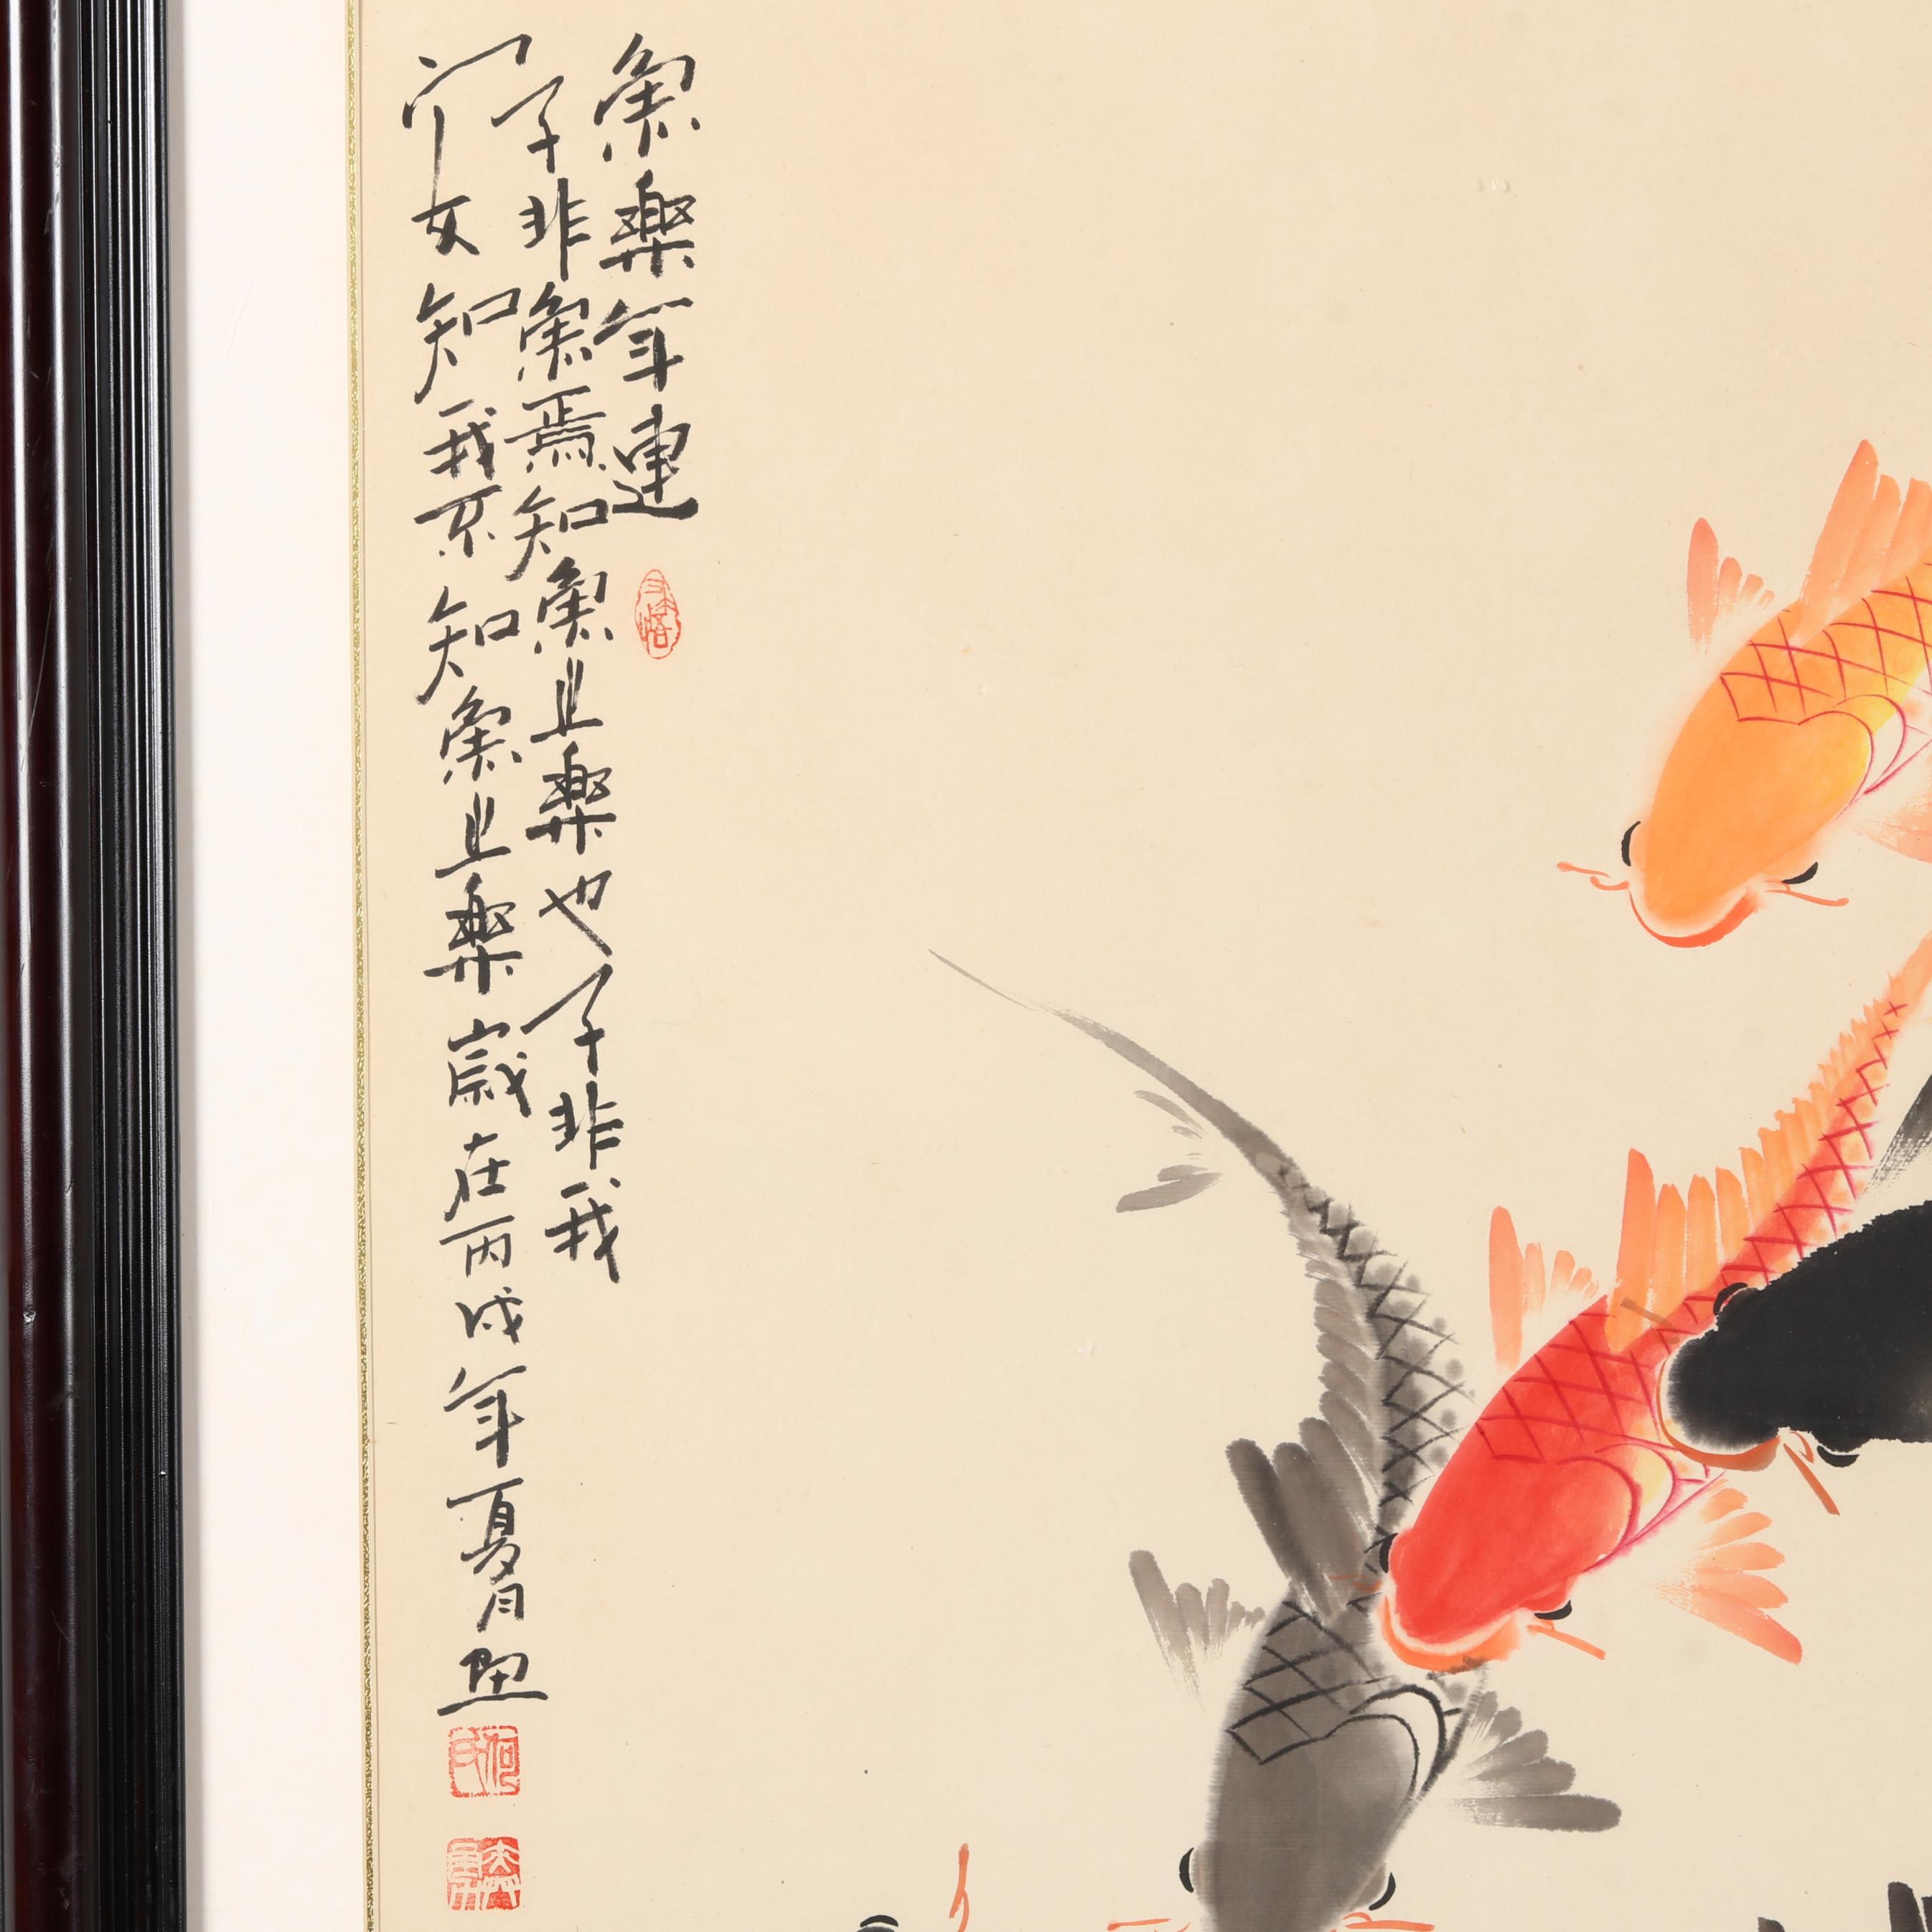 魚樂年連
子非魚焉知魚之樂也子非我
安知我不知魚之樂歲在丙戌年夏月
何氏